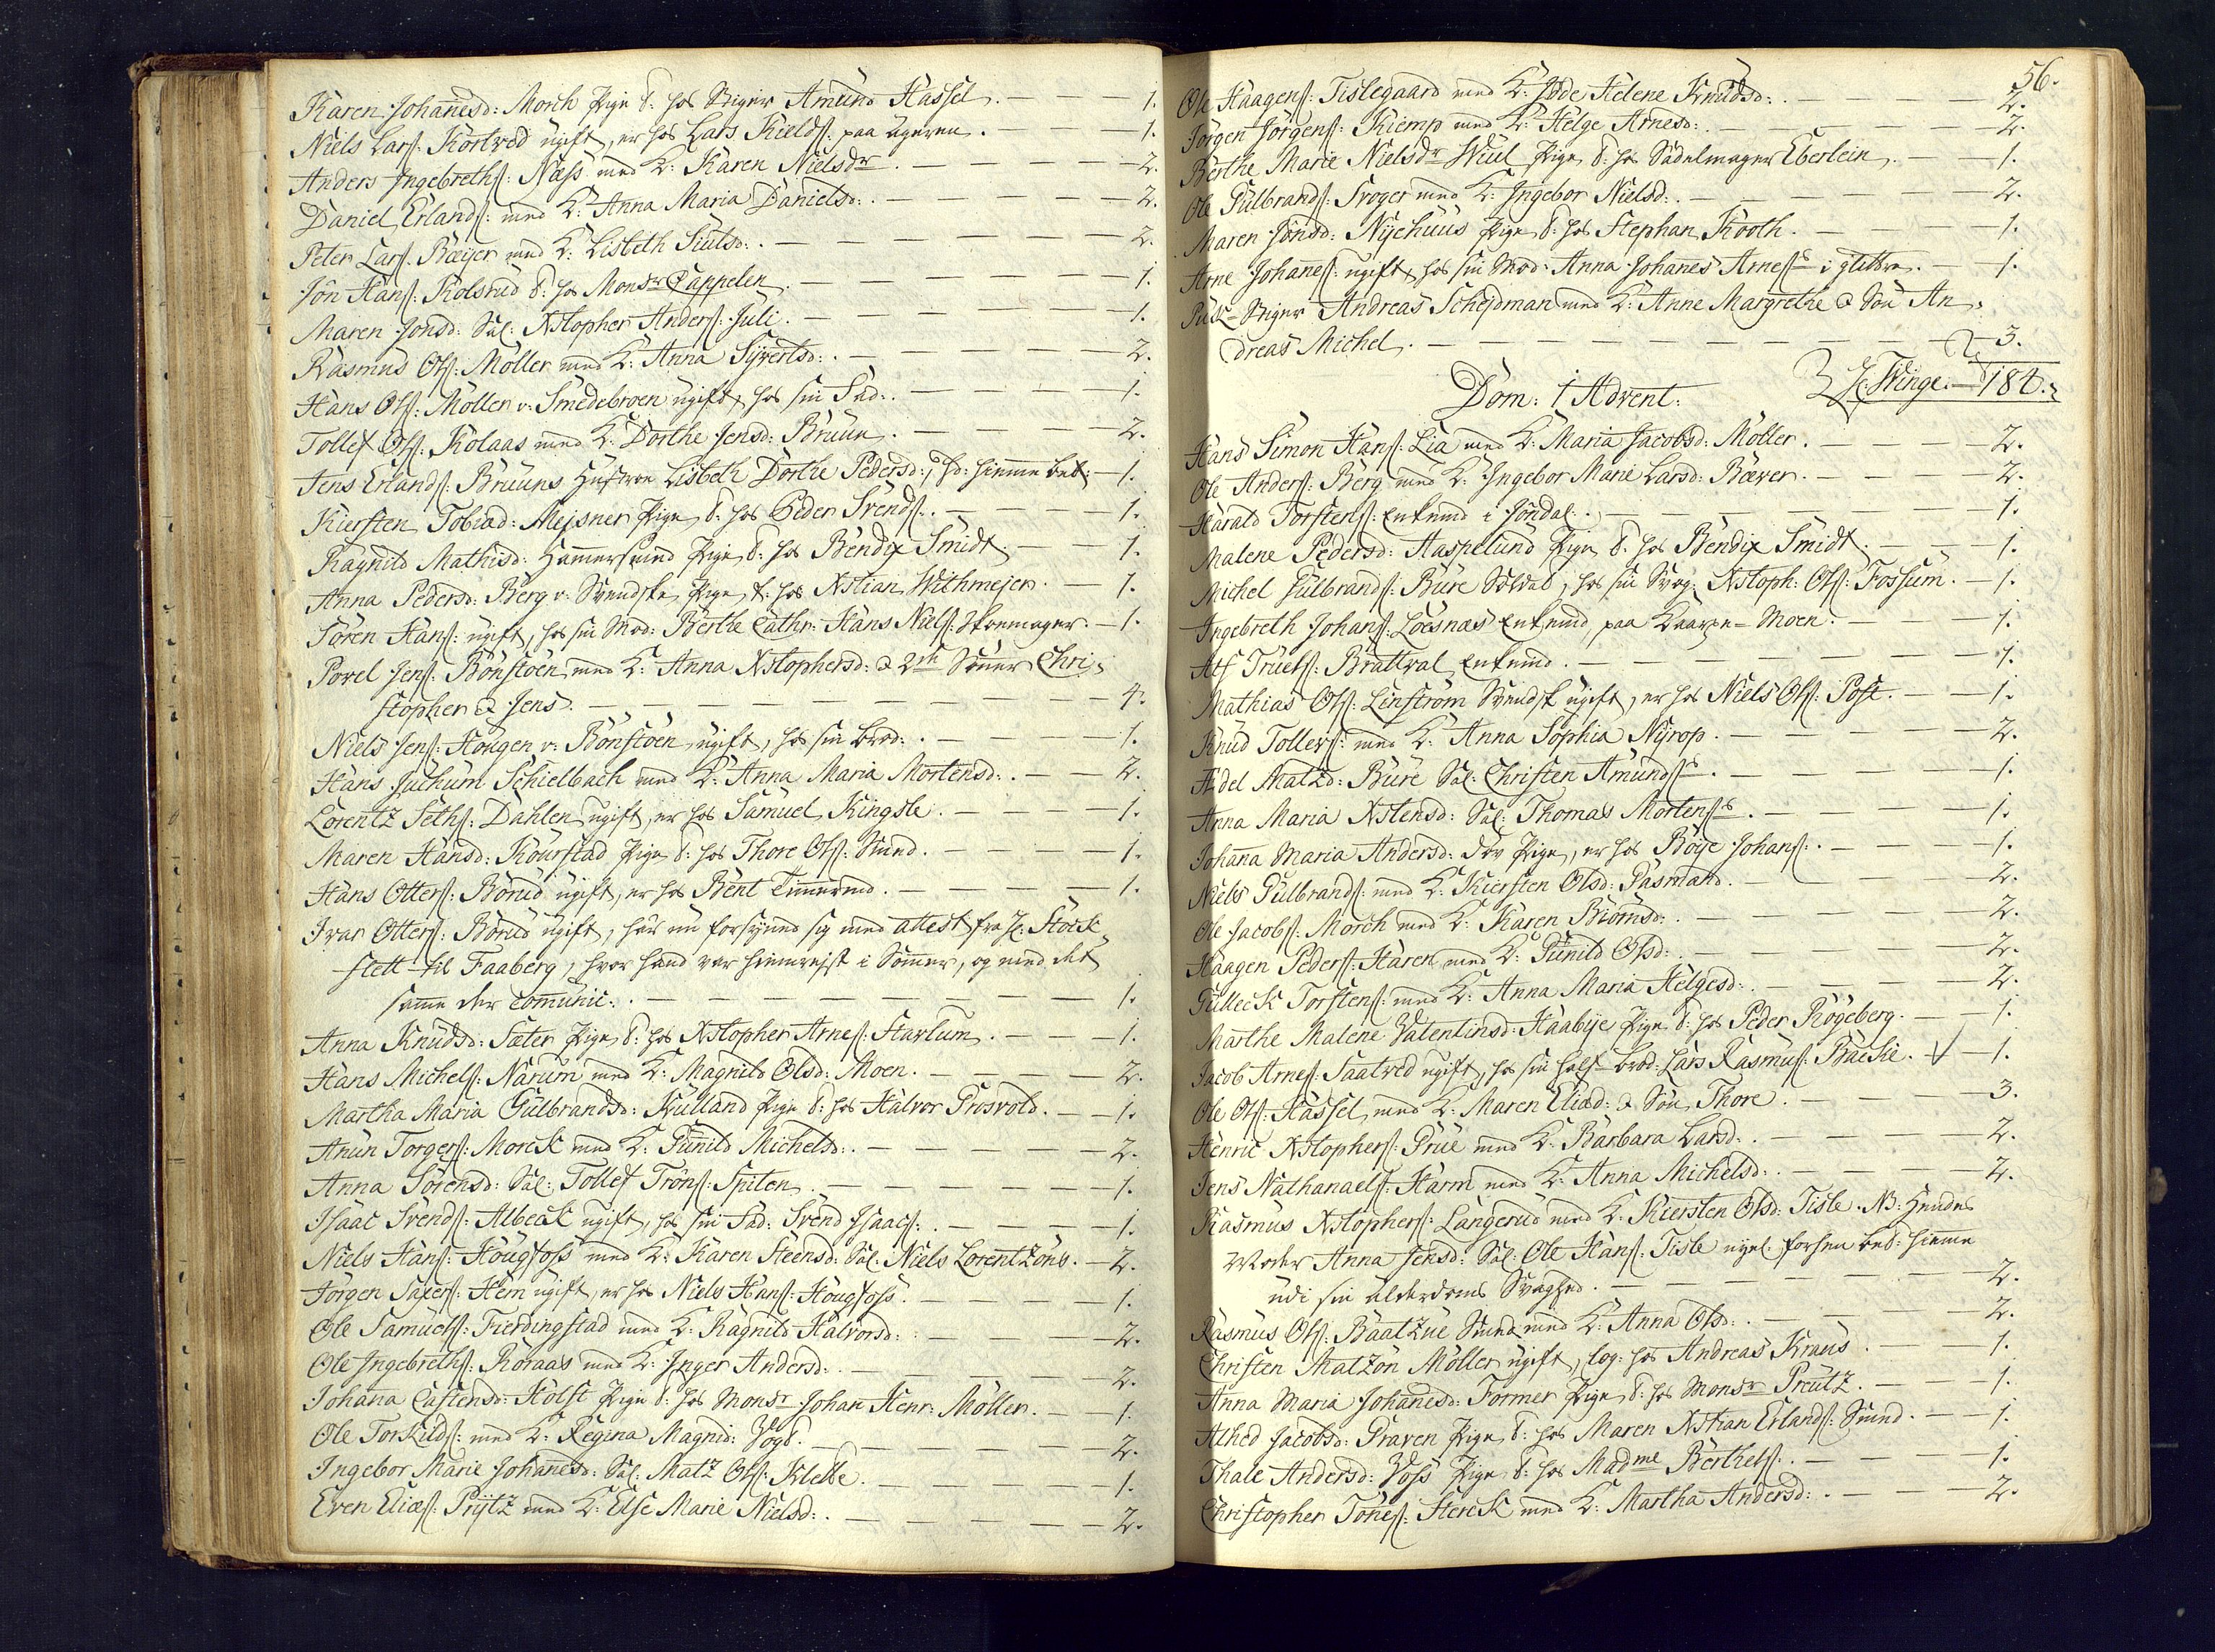 Karen Johanesd: Morch Pige t: hos Stiger Amund Hassel. — 1.
Niels Lars: Kortved ugift, er hos Lars Kields: paa Ageren. — 1.
Anders Ingebreths: Næss med K: Karen Nielsdr — 2.
Daniel Erlands: med K: Anna Maria Danielsd: — 2.
Peter Lars: Bæyer med K: Lisbeth Siulsd: — 2.
Jon Hans: Kolsrud t: hos Monsr Cappelen. — 1.
Maren Jonsd: Sal: Xstopher Anders: Juli. — 1.
Rasmus Ols: Møller med K: Anna Syvertsd: — 2.
Hans Ols: Møller v: Smedebroen ugift, hos sin Fad: — 1.
Tollef Ols: Kolaas med K: Dorthe Jensd: Bruun. — 2.
Jens Erlands: Bruuns Hustroe Lisbeth Dorthe Pedersd: hiemme bet: — 1.
Kiersten Tobiæd: Mejsner Pige t: hos Peder Svends: — 1.
Ragnild Mathisd: Hammersmed Pige t: hos Bendix Smidt — 1.
Anna Pedersd: Berg v: Svendske Pige t: hos Xstian Withmejer. — 1.
Søren Hans: ugift, hos sin Mod: Berthe Cathr: Hans Niels: Skoemager. — 1.
Povel Jens: Bønstøen med K: Anna Xstophersd: & 2de Sønner Chri-
stopher & Jens. — 4.
Niels Jens: Hougen v: Bønstøen, ugift, hos sin Brod: — 1.
Hans Juchum Schielbach med K: Anna Maria Mortensd: — 2.
Lorentz Seths: Dahlen ugift, er hos Samuel Kingsle. — 1.
Maren Hansd: Kourstad Pige t: hos Thore Ols: Smed. — 1.
Hans Otters: Borud ugift, er hos Bent Timmermd. — 1.
Ivar Otters: Borud ugift, har nu forsyned sig med attest fra H: Stock-
flett til Faaberg, hvor hand var hiemrejst i Sommer, og med det
samme der communic: — 1.
Anna Knudsd: Sæter Pige t: hos Xstopher Arnes: Stavlum. — 1.
Hans Michels: Narum med K: Magnild Olsd: Moen. — 2.
Martha Maria Gulbrandsd: Kulland Pige t: hos Halvor Grosvold. — 1.
Anun Torgers: Morck med K: Gunild Michelsd: — 2.
Anna Sørensd: Sal: Tollef Trøns: Spiten. — 1.
Isaac Svends: Albeck ugift, hos sin Fad: Svend Isaacs: — 1.
Niels Hans: Hougfoss med K: Karen Steensd: Sal: Niels Lorentzøns. — 2.
Jørgen Saxes: Hem ugift, er hos Niels Hans: Hougfoss. — 1.
Ole Samuels: Fierdingstad med K: Ragnild Halvorsd: — 2.
Ole Ingebreths: Roraas med K: Inger Andersd: — 2.
Johanna Castensd: Holst Pige t: hos Monsr Johan Henr: Møller. — 1.
Ole Torkilds: med K: Regina Magnid: Vogt. — 2.
Ingebor Marie Johanesd: Sal: Matz Ols: Klette. — 1.
Even Eliæs: Prytz med K: Else Marie Nielsd: — 2.
56.
Ole Haagens: Tislegaard med K: Helene Knudsd: — 2.
Jørgen Jørgens: Kiemp med K: Helge Arnesd: — 2.
Berthe Marie Nielsdr Wiul Pige t: hos Sadelmager Eberlein. — 1.
Ole Gulbrands: Troger med K: Ingebor Nielsd: — 2.
Maren Jonsd: Nyehuus Pige t: hos Stephan Kooth. — 1.
Arne Johanes: ugift, hos sin Mod: Anna Johanes Arnes: i Glittre. — 1.
Puk-Stiger Andreas Schejdman med K: Anne Margrethe & Søn An-
dreas Michel. — 3.
H: Winge. — 184.
Dom: 1 Advent.
Hans Simon Hans: Lia med K: Maria Jacobsd: Møller. — 2.
Ole Anders: Berg med K: Ingebor Marie Larsd: Bæver. — 2.
Harald Torstens: Enkemd i Jondal. — 1.
Malene Pedersd: Haspelund Pige t: hos Bendix Smidt. — 1.
Michel Gulbrands: Bure Soldat, hos sin Svog: Xstoph: Ols: Fossum. — 1.
Ingebreth Johans: Løesnæs Enkemd paa Moen. — 1.
Alf Truels: Brattval Enkemd. — 1.
Mathias Ols: Linstrøm Svendsk ugift, er hos Niels Ols: Post. — 1.
Knud Tollevs: med K: Anna Sophia Nyrop. — 2.
Ædel Matzd: Bure Sal: Christen Amunds: — 1.
Anna Maria Xstensd: Sal: Thomas Mortens: — 1.
Johanna Maria Andersd: døv Pige, er hos Boye Johans: — 1.
Niels Gulbrands: med K: Kiersten Olsd: Pasmand. — 2.
Ole Jacobs: Morch med K: Karen Biørnsd: — 2.
Haagen Peders: Haren med K: Gunild Olsd: — 2.
Gulleck Torstens: med K: Anna Maria Helgesd: — 2.
Marthe Malene Valentinsd: Haabye Pige t: hos Peder Røgeberg. — 1.
Jacob Arnes: Saatved ugift, hos sin half-Brod: Lars Rasmus: Backe. — 1.
Ole Ols: Hassel med K: Maren Eliæd: & Søn Thore. — 3.
Henric Xstophers: Grue med K: Barbara Larsd: — 2.
Jens Nathanaels: Harm med K: Anna Michelsd: — 2.
Rasmus Xstophers: Langerud med K: Kiersten Olsd: Tisle. NB: Hendes
Moder Anna Jensd: Sal: Ole Hans: Tisle hiemme
udi sin Alderdoms Svaghed. — 2.
Rasmus Ols: Baatzue Smed med K: Anna Olsd: — 2.
Christen Matzøn Møller ugift, log: hos Andreas Kraus. — 1.
Anna Maria Johanesd: Former Pige t: hos Monsr Preutz. — 1.
Alhed Jacobsd: Graven Pige t: hos Maren Xstian Erlands: Smed. — 1.
Thale Andersd: Voss Pige t: hos Madme Berthels: — 1.
Christopher Tønes: Sterck med K: Martha Andersd: — 2.